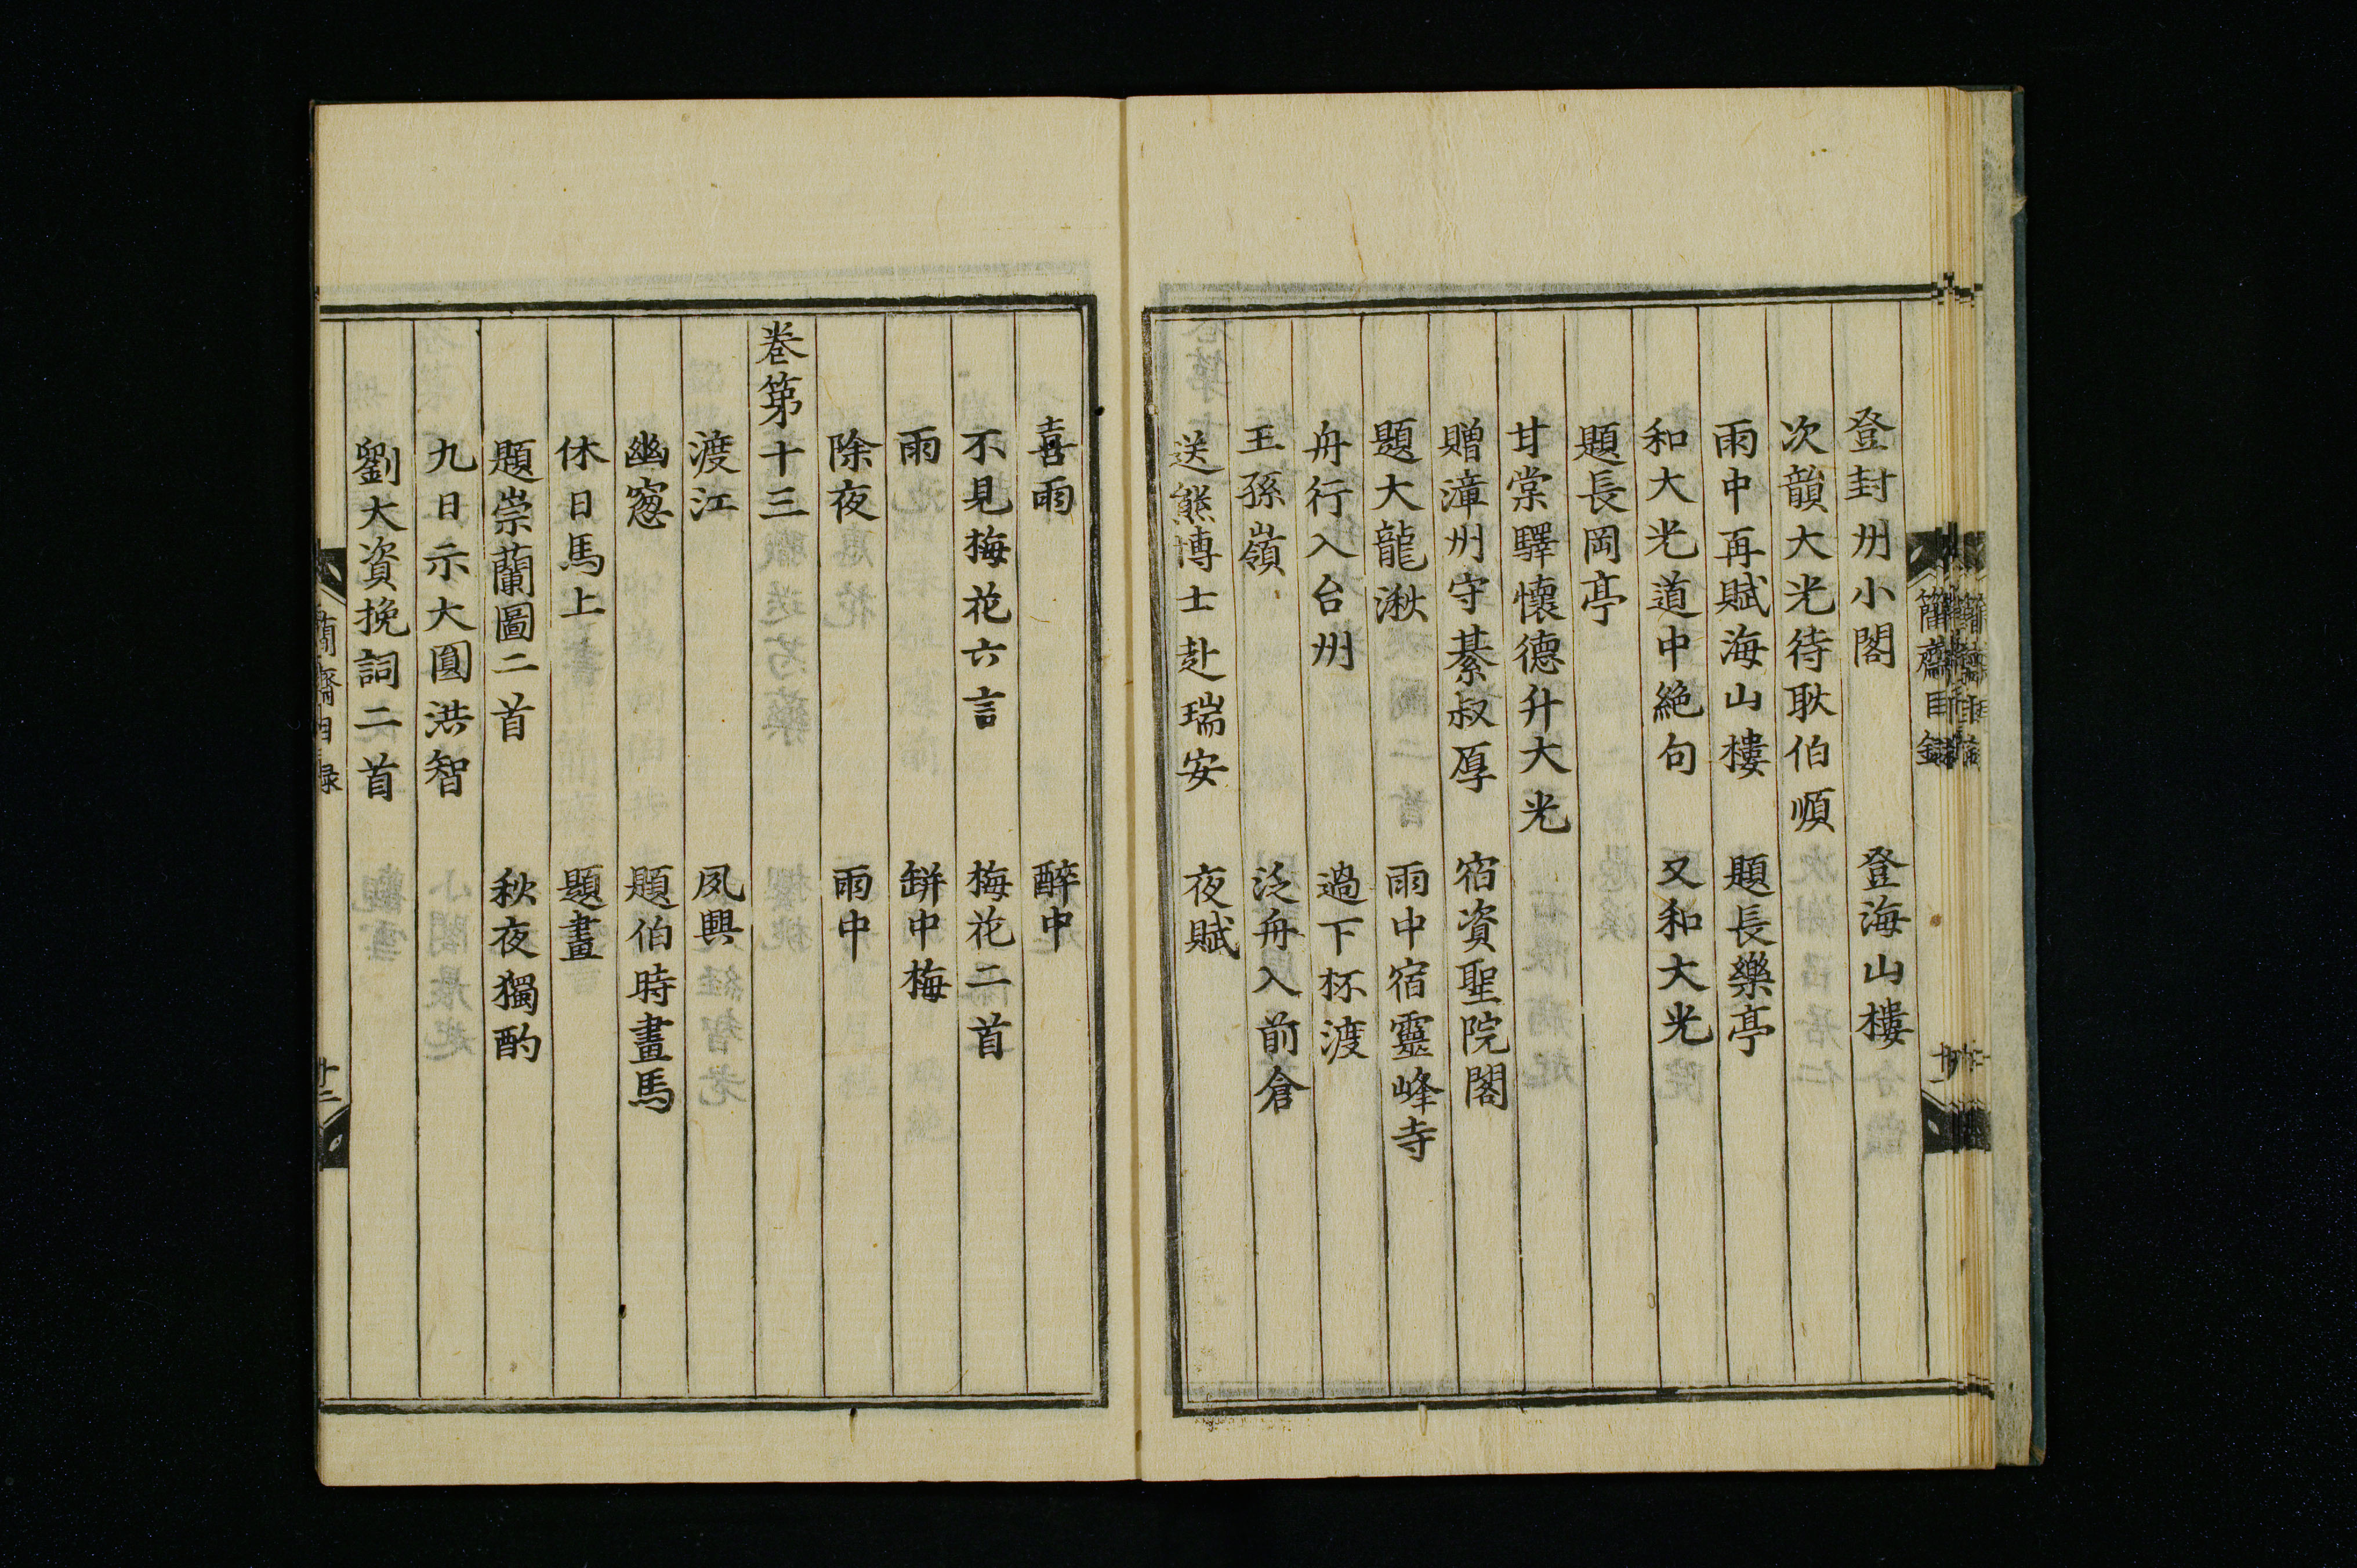 登封州小閣　登海山樓
次韻大光待耿伯順
雨中再賦海山樓　題長樂亭
和大光道中絶句　又和大光
題長岡亭
甘棠驛懷德升大光
贈漳州守綦叔厚　宿資聖院閣
題大龍湫　雨中宿靈峰寺
舟行入台州　過下杯渡
王孫嶺　泛舟入前倉
送熊博士赴瑞安　夜賦
簡齋目録
喜雨　醉中
不見梅花六言　梅花二首
雨　缾中梅
除夜　雨中
卷第十三
渡江　夙興
幽窓　題伯時畫馬
休日馬上　題畫
題崇蘭圖二首　秋夜獨酌
九日示大圓洪智
劉大資挽詞二首
簡齋目録　十二